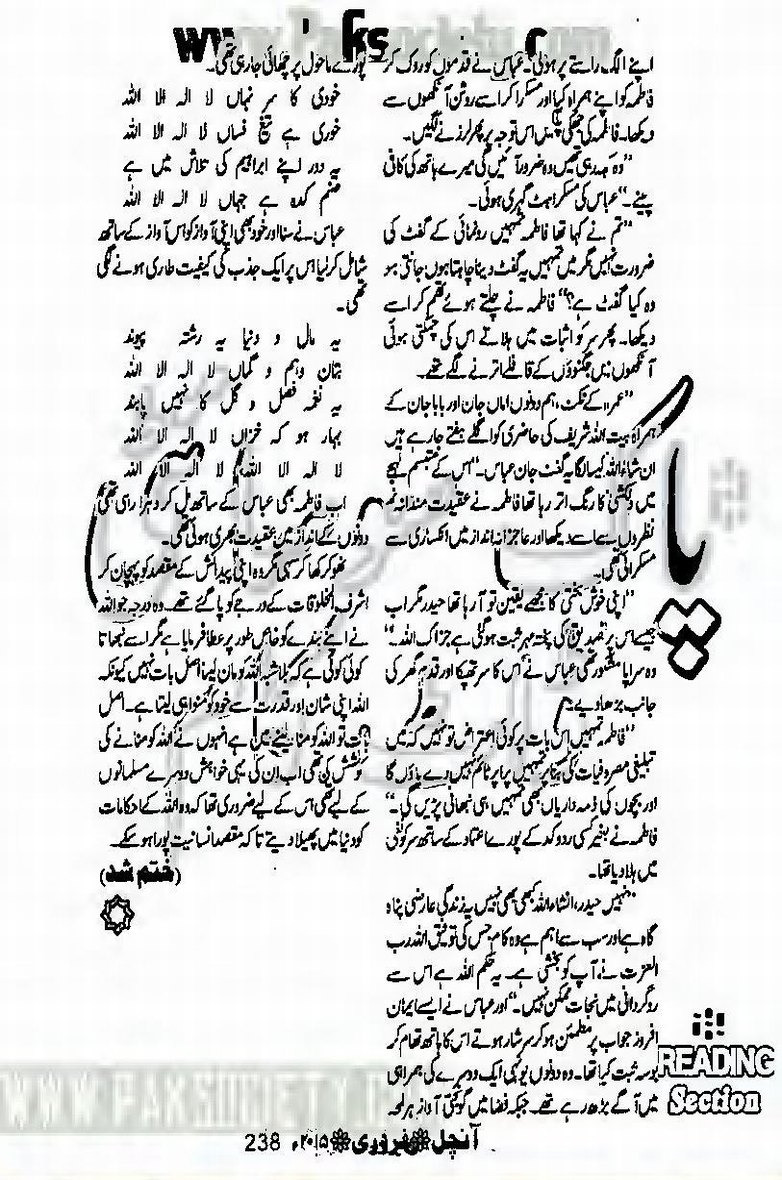 اپنے الگ راستے پر ہولی۔ عباس نے قدموں کو روک کر
فاطمہ کو اپنے ہمراہ کیا اور مسکرا کر اسے روشن آنکھوں سے
دیکھا۔ فاطمہ کی جھکی پلکیں اس توجہ پر پھر لرزنے لگیں۔
”وہ کہہ رہی تھیں وہ ضرور آئیں گی میرے ہاتھ کی کافی
پینے۔“ عباس کی مسکراہٹ گہری ہوئی۔
”تم نے کہا تھا فاطمہ تمہیں رونمائی کے گفٹ کی
ضرورت نہیں مگر میں تمہیں یہ گفٹ دینا چاہتا ہوں جانتی ہو
وہ کیا گفٹ ہے؟“ فاطمہ نے چلتے ہوئے تھم کر اسے
دیکھا۔ پھر سر کو اثبات میں ہلاتے اس کی چمکتی ہوئی
آنکھوں میں جگنوؤں کے قافلے اترنے لگے تھے۔
”عمرہ کے ٹکٹ، ہم دونوں اماں جان اور بابا جان کے
ہمراہ بیت اللہ شریف کی حاضری کو اگلے ہفتے جا رہے ہیں
ان شاء اللہ کیسا لگا یہ گفٹ جان عباس۔“ اس کے متبسم لہجے
میں دلکشی کا رنگ اتر رہا تھا فاطمہ نے عقیدت مندانہ
نظروں سے اسے دیکھا اور عاجزانہ انداز میں انکساری سے
مسکرائی تھی۔
”اپنی خوش بختی کا مجھے یقین تو آ رہا تھا حیدر مگر اب
جیسے اس پر تصدیق کی پختہ مہر ثبت ہو گئی ہے جزاک اللہ۔“
وہ سراپا مشکور تھی عباس نے اس کا سر تھپکا اور قدم گھر کی
جانب بڑھا دیے۔
”فاطمہ تمہیں اس بات پر کوئی اعتراض تو نہیں کہ میں
تبلیغی مصروفیات کی بنا پر تمہیں پراپر ٹائم نہیں دے پاؤں گا
اور بچوں کی ذمہ داریاں بھی تمہیں ہی نبھانی پڑیں گی۔“
فاطمہ نے بغیر کسی ردو کد کے پورے اعتماد کے ساتھ سر کو نفی
میں ہلا دیا تھا۔
”نہیں حیدر، انشاء اللہ کبھی بھی نہیں یہ زندگی عارضی پناہ
گاہ ہے اور سب سے اہم ہے وہ کام جس کی توفیق اللہ رب
العزت نے آپ کو بخشی ہے۔ یہ حکم اللہ ہے اس سے
روگردانی میں نجات ممکن نہیں۔“ اور عباس نے ایسے ایمان
افروز جواب پر مطمئن ہو کر سرشار ہوتے اس کا ہاتھ تھام کر
بوسہ ثبت کیا تھا۔ وہ دونوں یونہی ایک دوسرے کی ہمراہی
میں آگے بڑھ رہے تھے۔ جبکہ فضا میں گونجتی آواز ہر لمحہ
پورے ماحول پر چھائی جا رہی تھی۔
خودی کا سر نہاں لا الہ الا اللہ
خودی ہے تیغ فساں لا الہ الا اللہ
یہ دور اپنے ابراہیم کی تلاش میں ہے
صنم کدہ ہے جہاں لا الہ الا اللہ
عباس نے سنا اور خود بھی اپنی آواز کو اس آواز کے ساتھ
شامل کر لیا اس پر ایک جذب کی کیفیت طاری ہونے لگی
تھی۔
یہ مال و دنیا یہ رشتہ پیوند
بتان وہم و گماں لا الہ الا اللہ
یہ نغمہ فصل و گل کا نہیں پابند
بہار ہو کہ خزاں لا الہ الا اللہ
لا الہ الا اللہ لا الہ الا اللہ
اب فاطمہ بھی عباس کے ساتھ مل کر دہرا رہی تھی
دونوں کے انداز میں عقیدت بھری ہوئی تھی۔
ٹھوکر کھا کر سہی مگر وہ اپنی پیدائش کے مقصد کو پہچان کر
اشرف المخلوقات کے درجے کو پا گئے تھے۔ وہ درجہ جو اللہ
نے اپنے بندے کو خاص طور پر عطا فرمایا ہے مگر اسے نبھاتا
کوئی کوئی ہے کہ بلاشبہ اللہ کو مان لینا اصل بات نہیں کیونکہ
اللہ اپنی شان اور قدرت سے خود کو منوا ہی لیتا ہے۔ اصل
بات تو اللہ کو منا لینے میں ہے انہوں نے اللہ کو منانے کی
کوشش کی تھی اب ان کی یہی خواہش دوسرے مسلمانوں
کے لیے تھی اس کے لیے ضروری تھا کہ وہ اللہ کے احکامات
کو دنیا میں پھیلا دیتے تاکہ مقصد انسانیت پورا ہو سکے۔
(ختم شد)
READING
Section
WWW.PAKSOCIETY.
آنچل فروری ۲۰۱۵ء 238